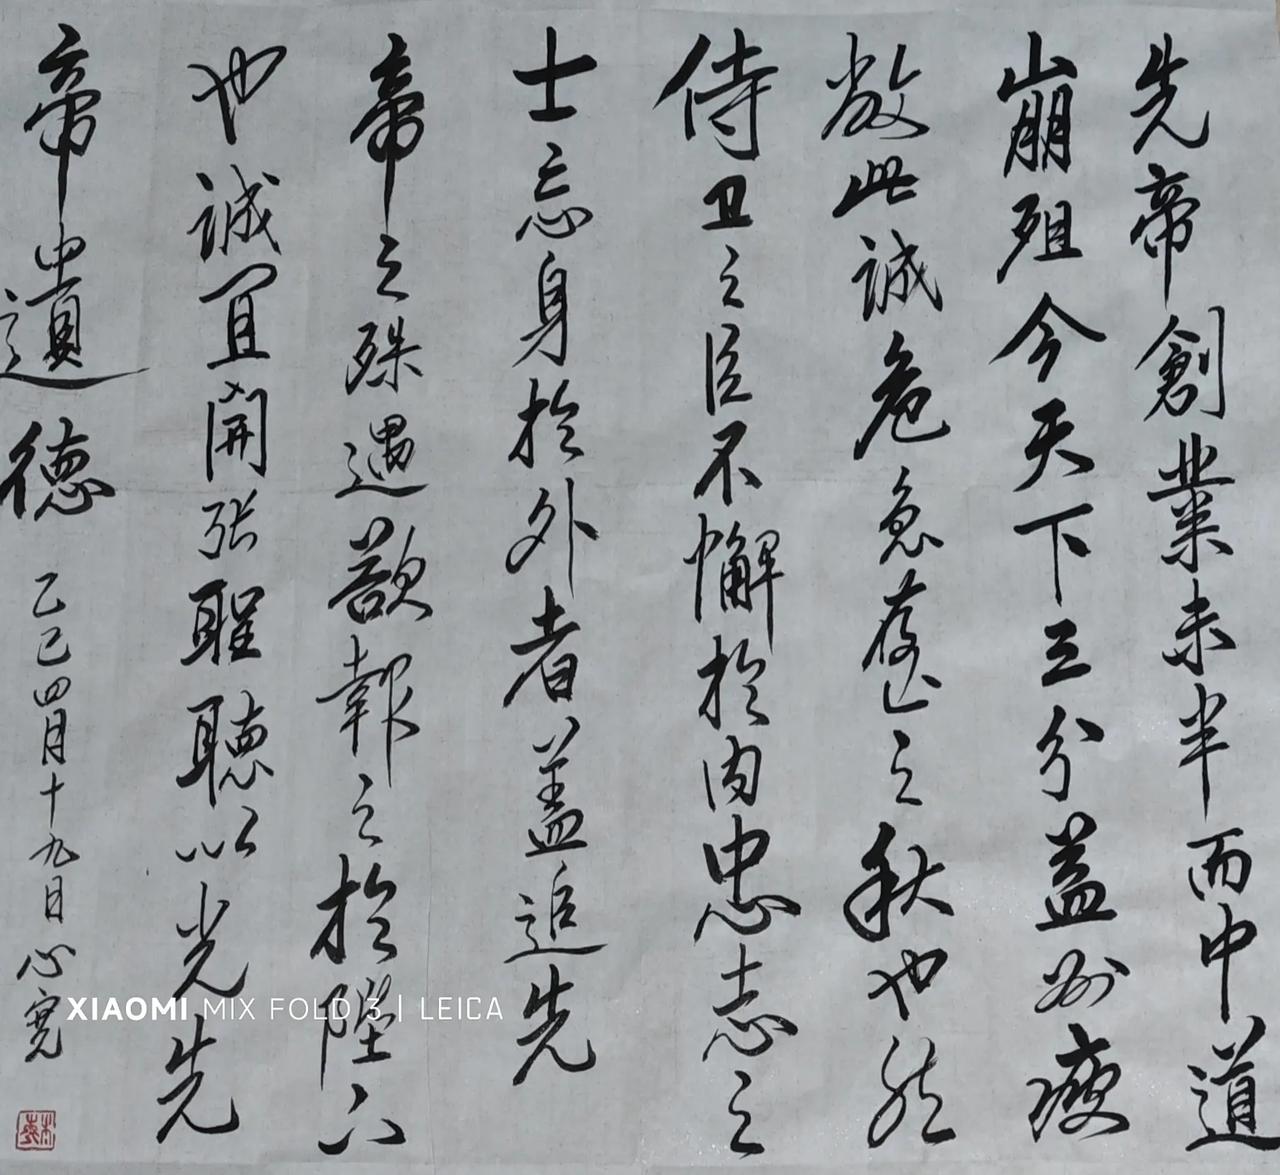 先帝創業未半而中道
崩殂今天下三分益州疲
敝此誠危急存亡之秋也然
侍卫之臣不懈於内忠志之
士忘身於外者盖追先
帝之殊遇欲報之於陛下
也誠宜開张聖聽以光先
帝遺德
乙巳四月十九日心寬
XIAOMI MIX FOLD 3 | LEICA